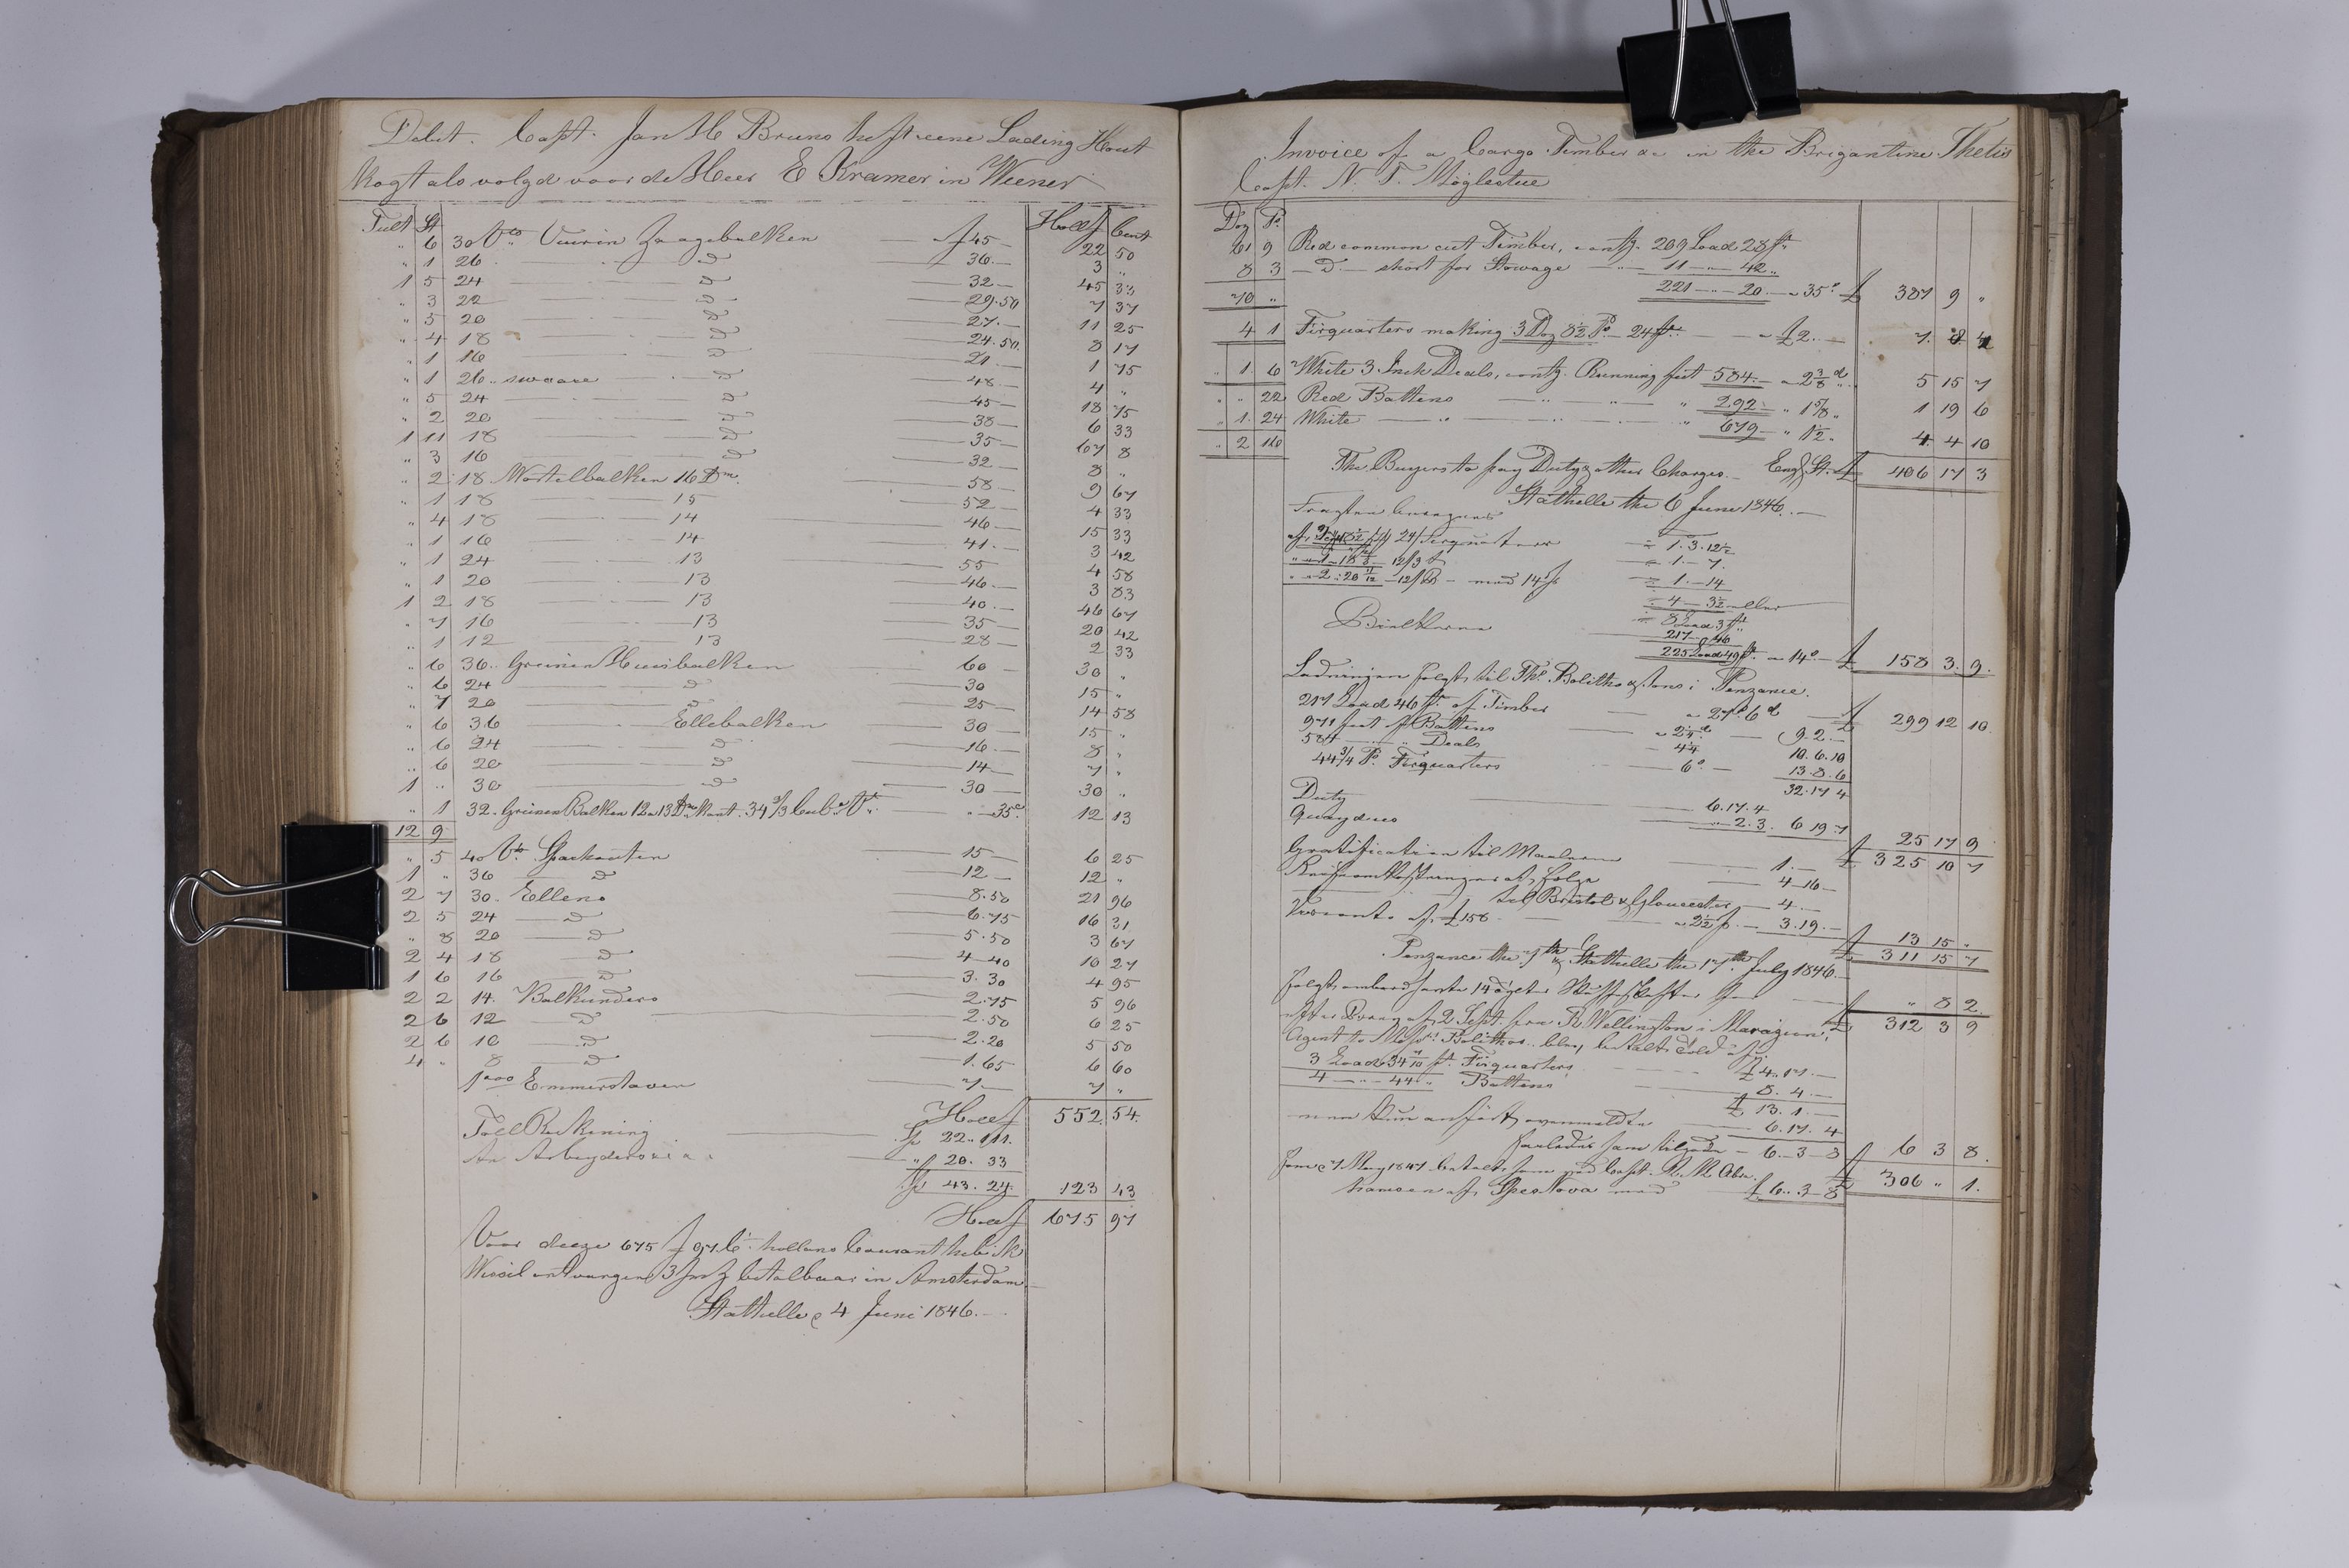 Debet. Capt. Jan H Bruns heft eene Lading Hout
kogt als volgd voor de Heer E Kramer in Weener
Tult St Hollf Cent
" 6 30 Vts Vuuren Zaagebalken f 45 — 22 50
" 1 26 — d 36 — 3 "
1 5 24 — d 32 — 45 33
" 3 22 — d 29.50 7 37
" 5 20 — d 27. — 11 25
" 4 18 — d 24.50. 8 17
" 1 16 — d 21 — 1 75
" 1 26 .. swaare — d 48 — 4 "
" 5 24 — d 45 — 18 75
" 2 20 — d 38 — 6 33
1 11 18 — d 35 — 67 8
" 3 16 — d 32 — 8 "
" 2 18 Wortelbalken 16 Dm. 58 — 9 67
" 1 18 — 15 52 — 4 33
" 4 18 — 14 46 — 15 33
" 1 16 — 14 41. — 3 42
" 1 24 — 13 55 — 4 58
" 1 20 — 13 46. — 3 83
1 2 18 — 13 40. — 46 67
" 7 16 — 13 35 — 20 42
" 1 12 — 13 28 — 2 33
" 6 36 .. Greinen Huusbalken 60 — 30 "
" 6 24 — d 30 15 "
" 7 20 — d 25 — 14 58
" 6 36 — Ellebalken 30 — 15 "
" 6 24 — d 16. — 8 "
" 6 20 — d 14 — 7 "
1 " 30 — d 30 — 30 "
" 1 32. Greinen Balken 12 a 13 Dm kant. 34 2/3 Cub. Vt. " — 35c. 12 13
12 9
" 5 40 Vt. Sparhouten 15 — 6 25
1 " 36 — d 12 — 12 "
2 7 30. Ellens 8.50 21 96
2 5 24 — d 6.75 16 31
" 8 20 — d 5.50 3 67
2 4 18 — d 4-40 10 27
1 6 16 — d 3.30 4 95
2 2 14. Balkunders 2.75 5 96
2 6 12 — d 2.50 6 25
2 6 10 — d 2.20 5 50
4 " 8 — d 1.65 6 60
1000 Emmerstaven 7 — 7 "
Hollf 552 54.
Toll Rekening 22..111.
An Arbeyders " 20. 33
43. 24. 123 43
Hollf 675 97
Voor deeze 675 f 97 Ct. hollans Courant heb ik
Wissel entvangen 3 betalbaar in Amsterdam
Stathelle 4 Juni 1846. —
Invoice of a Cargo Timber &c in the Brigantine Thetis
Capt. N. T. Møglestue
Doz Ps
61 9 Red common cut Timber, contg. 209 Load 28 ft.
8 3 — D — short for Stowage — 11 — " 42 "
70 " 221 — " — 20. — a 35s. £ 387 9 "
4 1 Firquarters making 3 Doz 8½ Ps — 24 ft. — a £2. — 7. 8. 4
" 1. 6 White 3 Inch Deals, contg. Running feet 584. — a 2 3/8 d 5 15 7
" " 22 Red Battens — " — " 292 — " 1 5/8 " 1 19 6
" 1. 24 White — " — " 679 — " 1½ " 4. 4 10
" 2 116
The Buyers to pay Duty & other Charges. — Engl. St. £ 406 17 3
Stathelle the 6 June 1846. —
Fragten beregnes
24/ Firquarters = 1. 3. 12½
12/3 = 1. — 7.
" " 2 : 20 11/12 — 12/ — med 14 = 1. — 14
= 4 — 3½ eller
= 8 Load 3 ft.
Bielkerne 217 — 46
225 Load 49 ft. — a 14s. — £ 158 3. 9.
Ladningen solgt til Ths. Bolitho & Sons i Penzance.
217 Load 46 ft. of Timber — a 27s. 6d — £ 299 12 10.
971 feet of Battens — a 2¼ d — 9. 2. —
584 — " Deals — 4¼ 10. 6. 10
44 3/4 Ps. Firquarters — 6s. — 13. 8. 6
32. 17 4
Duty 6. 17. 4
Quaydues " 2. 3. 6 19. 7
£ 25 17 9
£ 325 10 7
Gratification til Mægleren 1. —
Reiseomkostninger at sælge 4 16 —
til Bristol & Gloucester — 4. —
Disconto af £158 — a 2½ p. — 3. 19. —
£ 13 15 "
£ 311 15 7
Penzance the 7th & Stathelle the 17th July 1846. —
£ " 8 2.
£ 312 3 9
efter Brev af 2 Sept. fra R. Wellington i Marazion,
Agent to Messrs. Bolithos blev betalt Told af
3 Load 34 7/10 ft. Firquarters — £ 4. 17. —
4 — " 44 " Battens 8. 4. —
£ 13. 1. —
men kun anført ovenmeldte 6. 17. 4
saaledes som tilgode — 6. — 3 — 8 £ 6 3 8.
£ 306 " 1.
7 May 1847 betalt som ved Capt. R. N. Abra-
hamsen af Spes Nova med £ 6. . 3 — 8